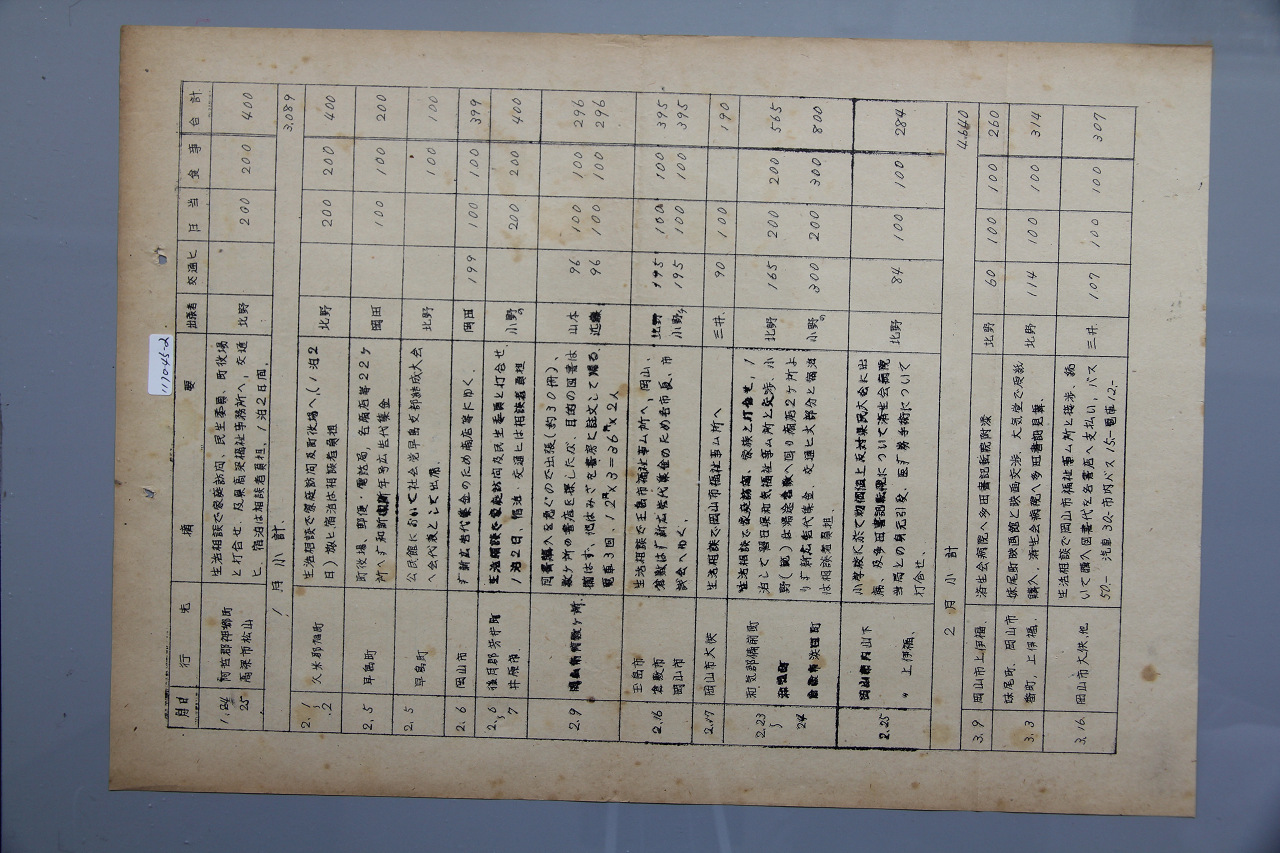 117045-2
月日 行先 摘要 出張者 交通ヒ 日当 食事 合計
1.24 阿哲郡神郷町 生活相談で家庭訪問、民生委員、町役場 北野 200 200 400
25 高梁市松山 と打合せ、及県高梁福祉事務所へ、交通
ヒ、宿泊は相談者負担、1泊2日間、
1月小計 3,089
2.1 久米郡旭町 生活相談で家庭訪問及町役場へ、(1泊2 北野 200 200 400
〜.2 日)旅と宿泊は相談者負担
2.5 早島町 町役場、郵便・電話局、各商店等22ヶ 岡田 100 100 200
所へすゞ和新年号広告代集金
2.5 早島町 公民館において社会党早島支部結成大会 北野 100 100
へ会代表として出席、
2.6 岡山市 すゞ新広告代集金のため商店等にゆく、 岡田 199 100 100 399
2.6 後月郡芳井町 生活相談で家庭訪問及民生委員と打合せ、 小野 200 200 400
7 井原市、 1泊2日、宿泊、交通ヒは相談者負担
2.9 図書購入を急ぐので出張(約30冊)、 山本 96 100 100 296
数ヶ所の書店を探したが、目的の図書は 近藤 96 100 100 296
電車3回、12円×3=36円×2人
2.16 玉島市 生活相談で玉島市福祉事ム所へ、岡山、 北野 195 100 100 395
倉敷市 倉敷はすゞ新広告代集金のため、市 小野 195 100 100 395
岡山市 談会へゆく、
2.17 岡山市大供 生活相談で岡山市福祉事ム所へ 三井 90 100 190
2.23 和気郡備前町 生活相談で家庭訪問、家族と打合せ、1 北野 165 200 200 565
〜 泊して翌日県和気福祉事ム所と交渉、小
24 野(範)は帰途倉敷へ回り商店2ヶ所よ 小野 300 200 300 800
りすゞ新広告代集金、交通ヒ大部分と宿泊
は相談者負担、
2.25 岡山市内山下 小学校に於て物価値上反対県民大会に出 北野 84 100 100 284
〃 上伊福、 席、及多田書記転院について済生会病院
当局との身元引受、医療手術について
打合せ、
2月小計 4,640
3.9 岡山市上伊福、 済生会病院へ多田書記転院附添 北野 60 100 100 260
3.3 妹尾町、岡山市 妹尾町映画館と映画交渉、大気堂で原紙 北野 114 100 100 314
番町、上伊福、 購入、済生会病院へ多田書記見舞、
3.16 岡山市大供、他 生活相談で岡山市福祉事ム所と接渉、続 三井 107 100 100 307
いて購入図書代を各書店へ支払い、バス
50.- 汽車30.- 市内バス15.- 電車12.-